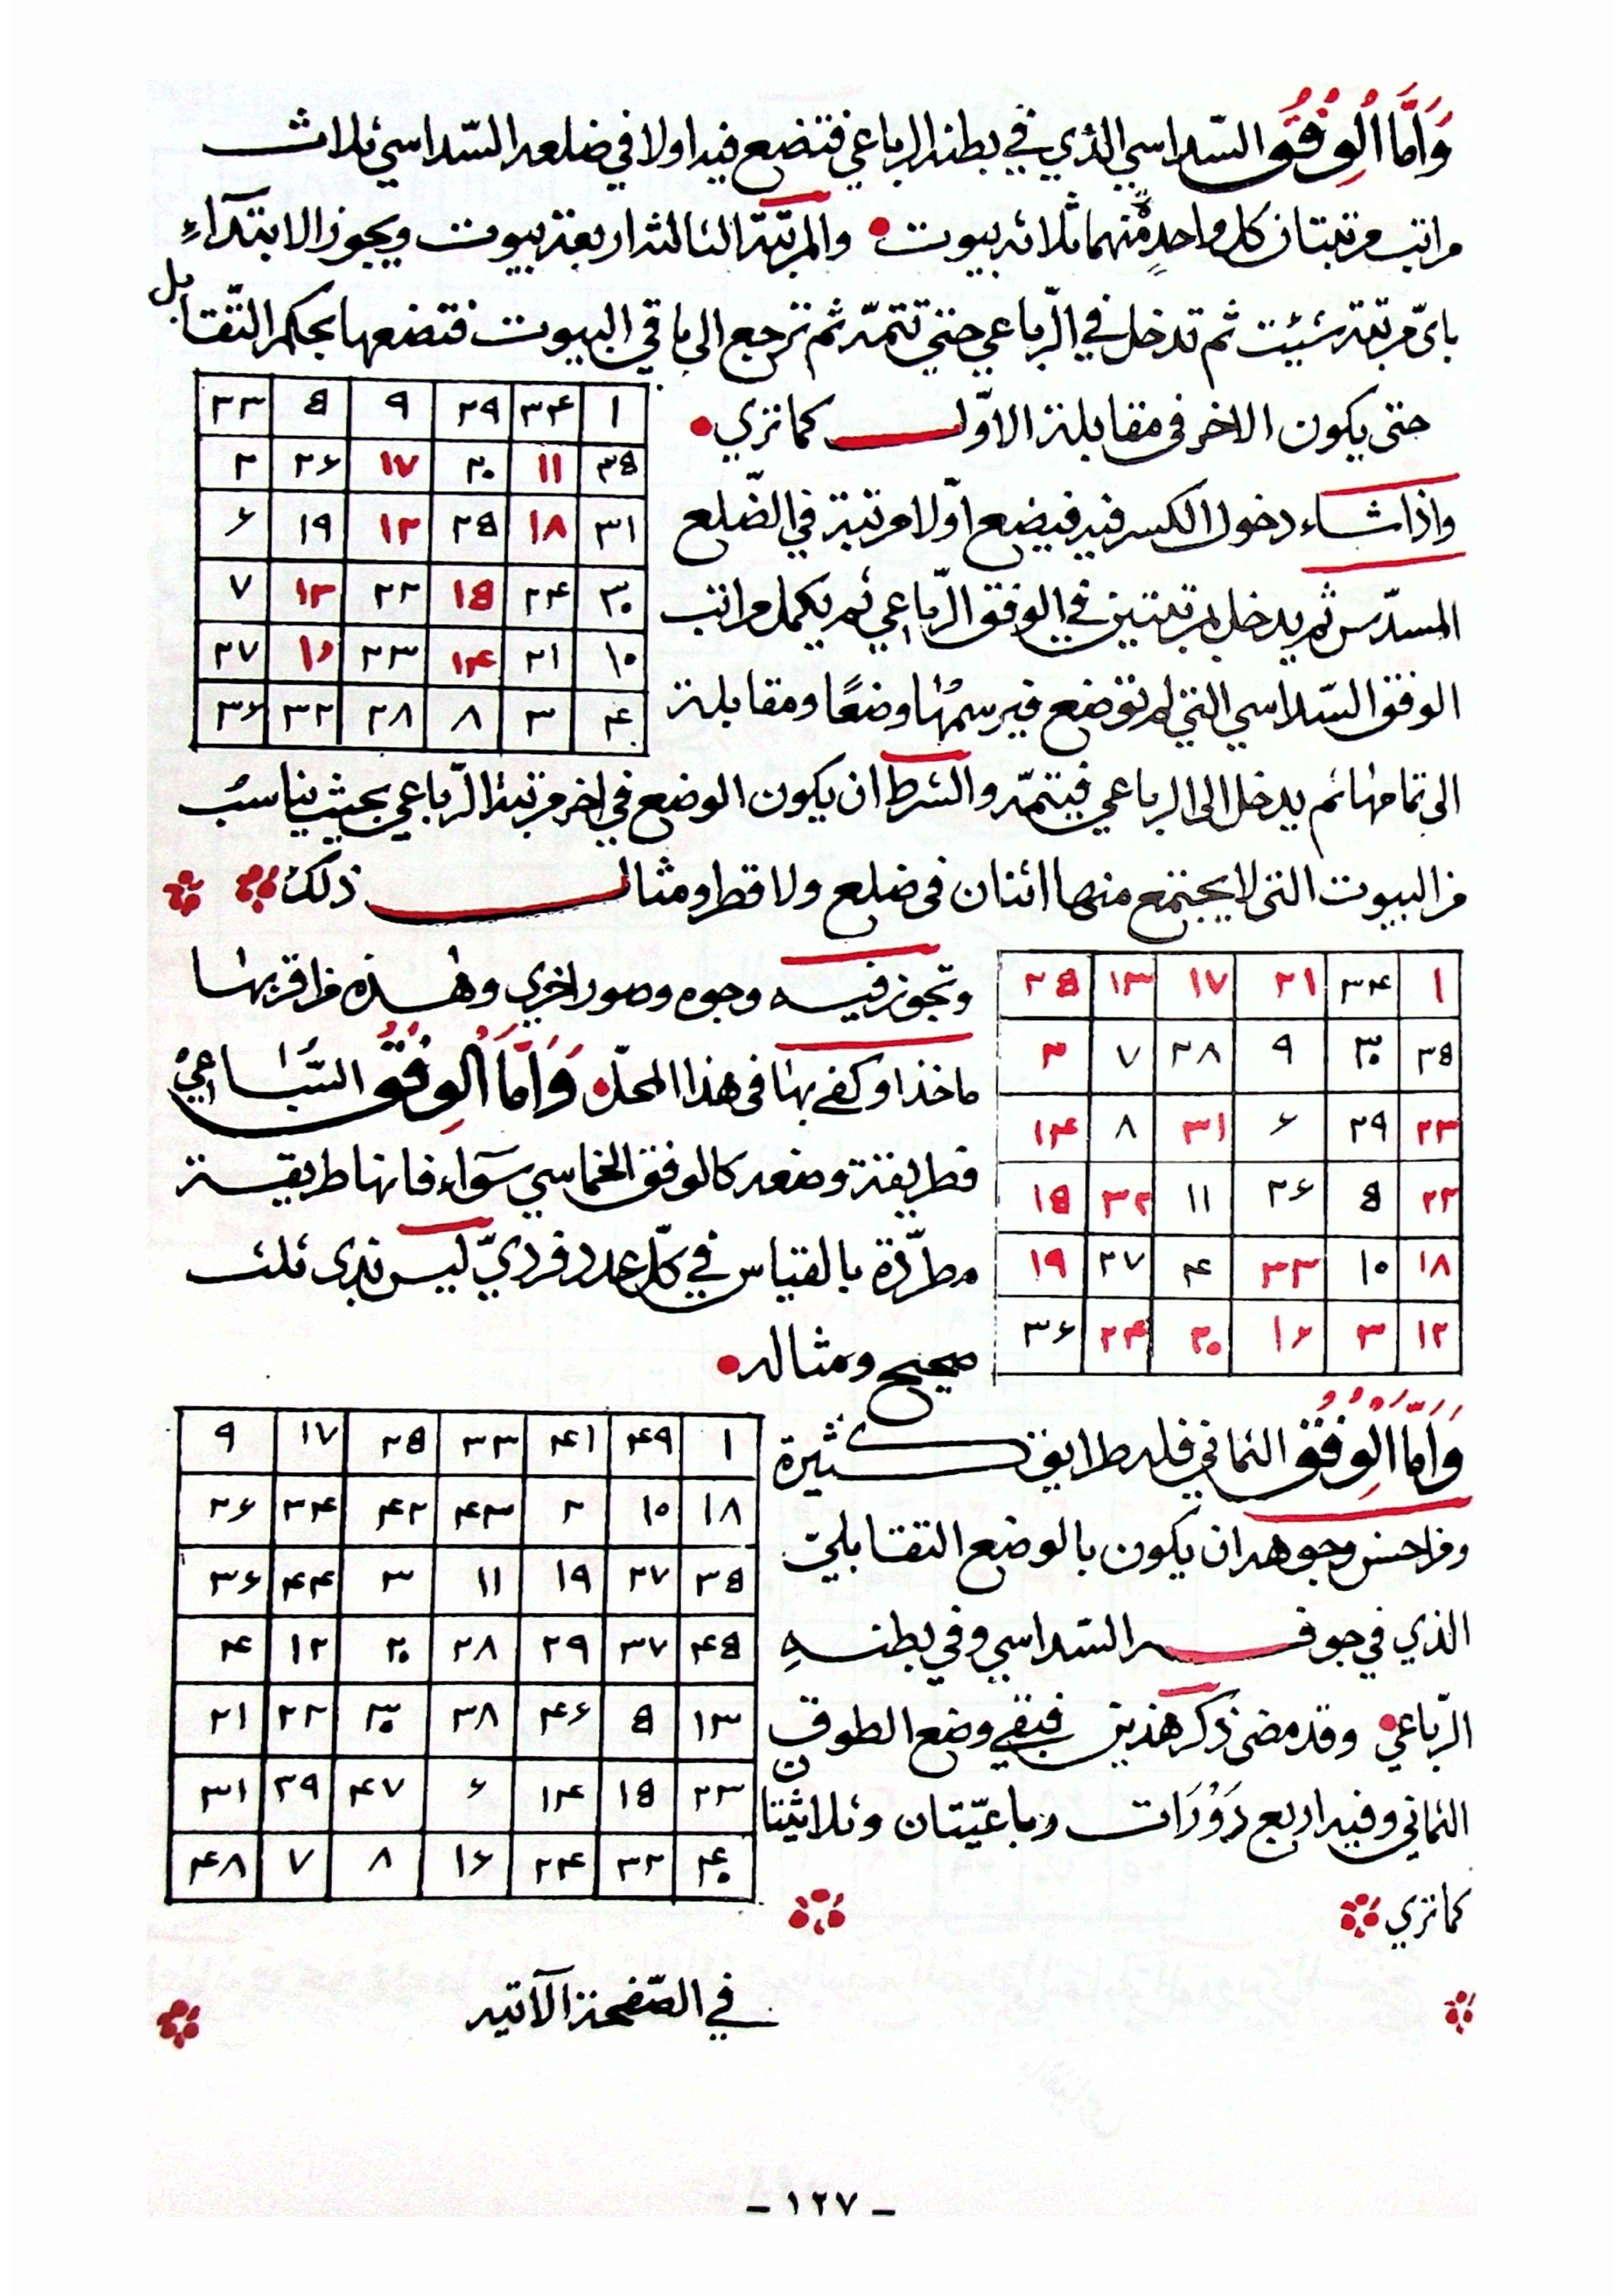 وَاَمَّا الْوِفُقُ السّداسي الذي في بطنه الرباعي فتضع فيه اولا في ضلعه السّداسي ثلاث
مراتب مرتبتان كل واحدٍ منهما ثلاثه بيوت والمرتبّة الثالثه اربعة بيوت ويجوز الابتدآءِ
باىّ مرتبة شيئت ثم تدخل في الرّباعي حتى تتمّه ثم ترجع الى باقي البيوت فتضعها بحكم التّقابل
حتى يكون الاخر فى مقابلة الاوّل كما تري
٢٣ ٥ ٩ ٢٩ ٣٤ ١
٢ ٢٦ ١٧ ٢٠ ١١ ٣٥
٦ ١٩ ١٢ ٢٥ ١٨ ٣١
٧ ١٣ ٢٢ ١٥ ٢٤ ٣٠
٢٧ ١٦ ٢٣ ١٤ ٢١ ١٠
٣٦ ٣٢ ٢٨ ٨ ٣ ٤
واذا شاء دخول الكسر فيه فيضع اوّلا مرتبة في الضّلع
المسدّس ثم يدخل بمرتبتين في الوفق الرّباعي ثم يكمل مراتب
الوفق السّداسي التي لم توضع فيرسمها وضعًا ومقابلة
الى تمامها ثم يدخل الى الرباعي فيتمّه والشرط ان يكون الوضع في اخر مرتبة الرّباعي بحيث يناسب
من البيوت التى لا يجتمع منها اثنان فى ضلع ولا قطر ومثال ذلك
٢٥ ١٣ ١٧ ٢١ ٣٤ ١
٢ ٧ ٢٨ ٩ ٣٠ ٣٥
١٤ ٨ ٣١ ٦ ٢٩ ٢٣
١٥ ٣٢ ١١ ٢٦ ٥ ٢٢
١٩ ٢٧ ٤ ٣٣ ١٠ ١٨
٣٦ ٢٤ ٢٠ ١٦ ٣ ١٢
وتجوز فيه وجوه وصور اخري وهذه من اقربها
ماخذا وكفى بها فى هذا المحلّ وَاَمَّا الْوِفُقُ السّباعي
فطريقة وضعه كالوفق الخماسي سَوَاء فانها طريقة
مطرّدة بالقياس في كلّ عدد فرديّ ليس بذى ثلث
صحيح ومثاله
٩ ١٧ ٢٥ ٣٣ ٤١ ٤٩ ١
٢٦ ٣٤ ٤٢ ٤٣ ٢ ١٠ ١٨
٣٦ ٤٤ ٣ ١١ ١٩ ٢٧ ٣٥
٤ ١٢ ٢٠ ٢٨ ٢٩ ٣٧ ٤٥
٢١ ٢٢ ٣٠ ٣٨ ٤٦ ٥ ١٣
٣١ ٣٩ ٤٧ ٦ ١٤ ١٥ ٢٣
٤٨ ٧ ٨ ١٦ ٢٤ ٣٢ ٤٠
وَاَمَّا الْوِفُقُ الثماني فله طرايق كثيرة
ومن احسن وجوهه ان يكون بالوضع التقابلي
الذي في جوفه السّداسي وفي بطنهِ
الرّباعي وقد مضى ذكر هذين فبقي وضع الطوق
الثماني وفيه اربع دَوْرَات رباعيّتان وثلاثيّتان
كما تري
في الصّفحة الآتيه
- ١٢٧ -